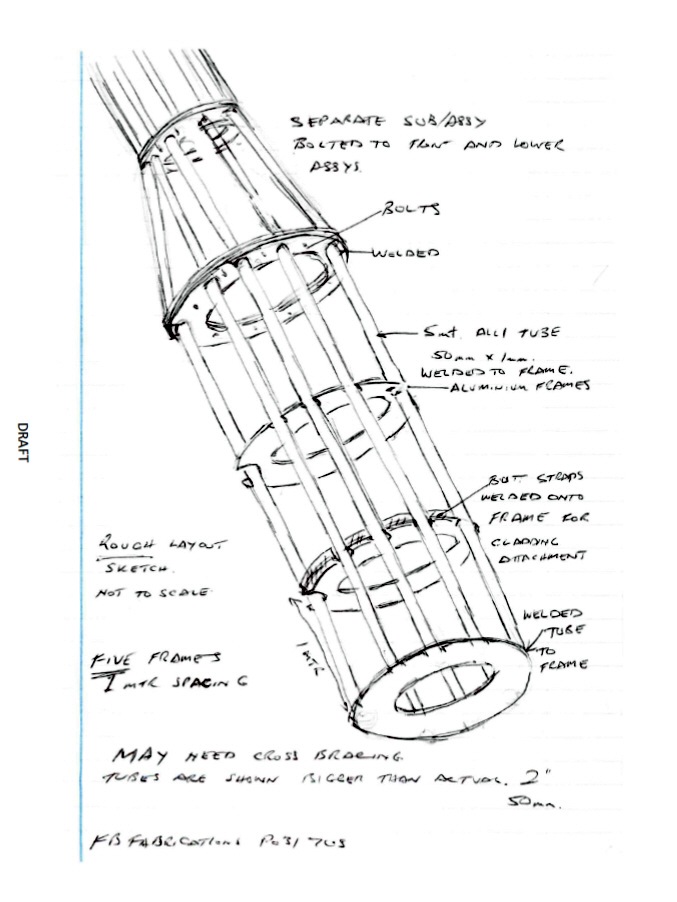 SEPARATE SUB/ASSY
BOLTED TO AND LOWER
ASSYS.
BOLTS
WELDED
5mt. ALLI TUBE
50mm x 1mm.
WELDED TO FRAME.
ALUMINIUM FRAMES
DRAFT
BUTT STRAPS
WELDED ONTO
FRAME FOR
CLADDING
ATTACHMENT
ROUGH LAYOUT
SKETCH.
NOT TO SCALE
WELDED
TUBE
TO
FRAME
1 MTR
FIVE FRAMES
1 MTR SPACING
MAY NEED CROSS BRACING
TUBES ARE SHOWN BIGGER THAN ACTUAL. 2"
50mm.
FABRICATIONS